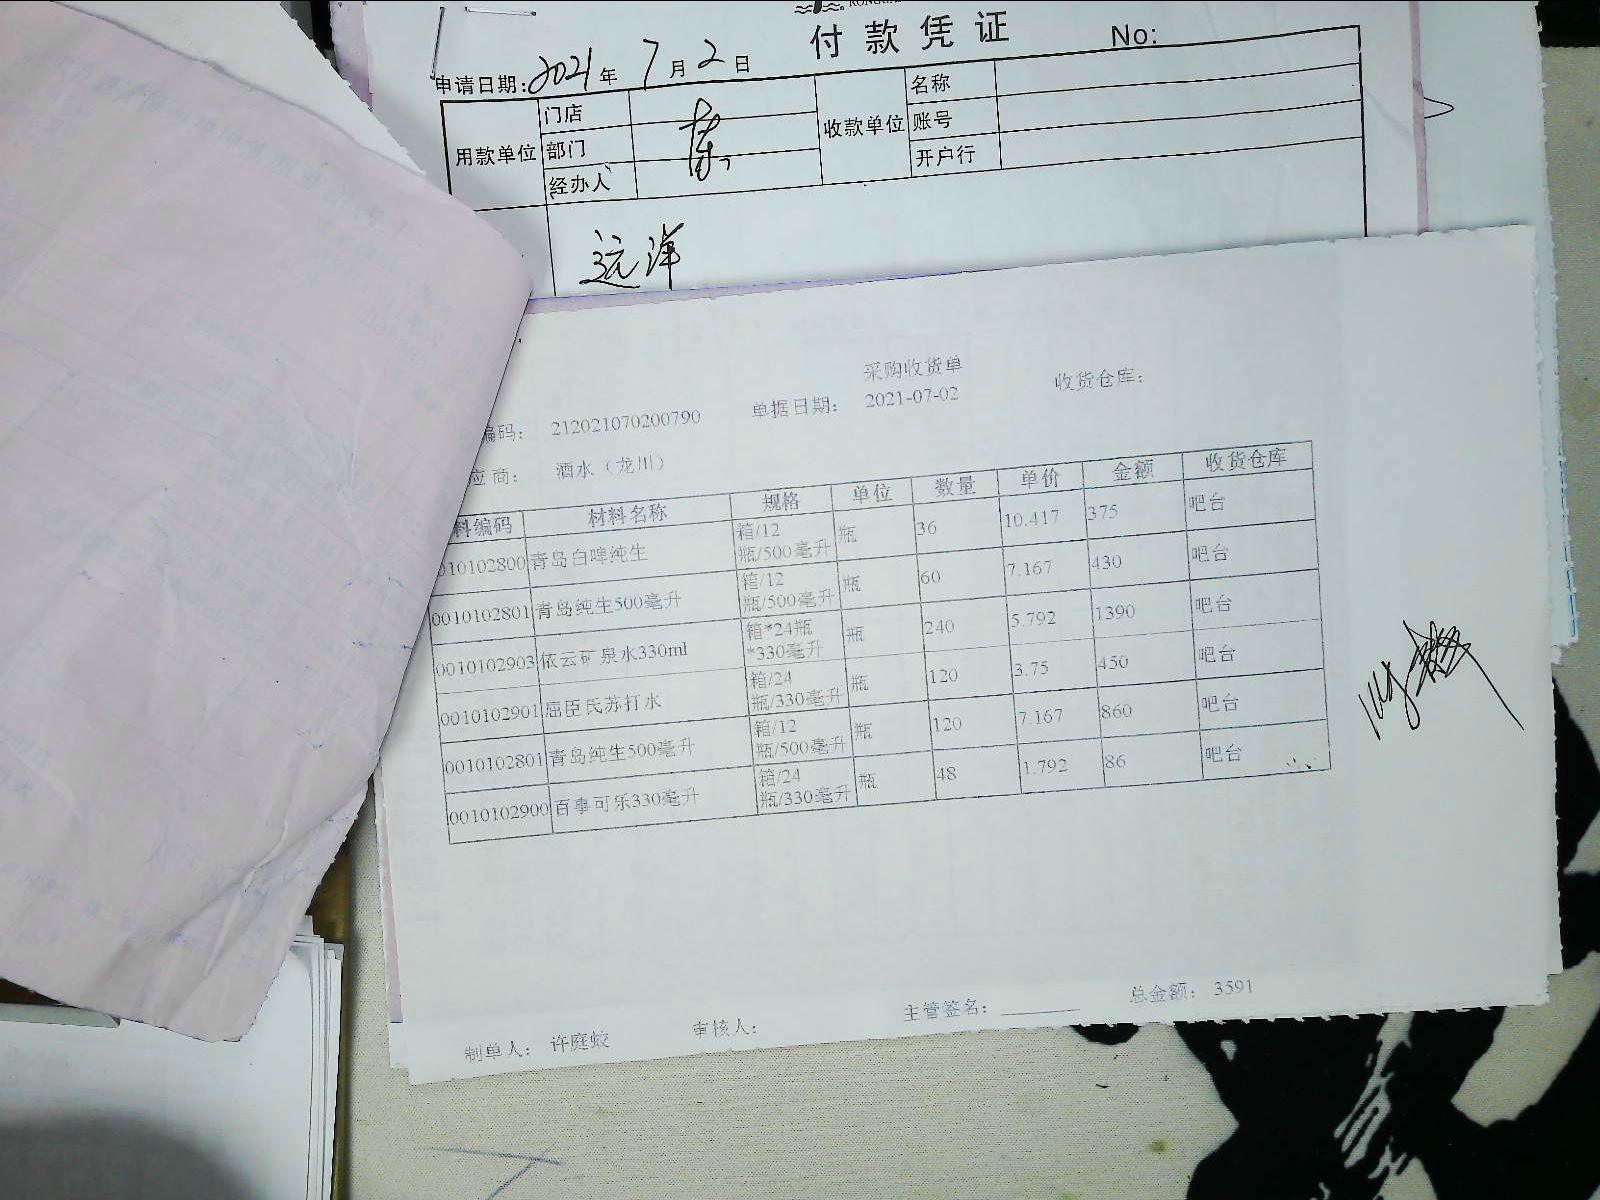 付款凭证
No:
申请日期:2021年7月2日
用款单位 门店 收款单位 名称
部门 账号
经办人 开户行
远洋
采购收货单
编码: 212021070200790 单据日期: 2021-07-02 收货仓库:
应商: 酒水（龙川）
料编码 材料名称 规格 单位 数量 单价 金额 收货仓库
010102800 青岛白啤纯生 箱/12瓶/500毫升 瓶 36 10.417 375 吧台
0010102801 青岛纯生500毫升 箱/12瓶/500毫升 瓶 60 7.167 430 吧台
0010102903 依云矿泉水330ml 箱*24瓶*330毫升 瓶 240 5.792 1390 吧台
0010102901 屈臣氏苏打水 箱/24瓶/330毫升 瓶 120 3.75 450 吧台
0010102801 青岛纯生500毫升 箱/12瓶/500毫升 瓶 120 7.167 860 吧台
0010102900 百事可乐330毫升 箱/24瓶/330毫升 瓶 48 1.792 86 吧台
制单人: 许庭蛟 审核人: 主管签名: 总金额: 3591